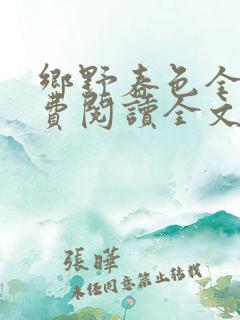 鄉野春色全
費閱讀全文
張曄
未经同意禁止转载